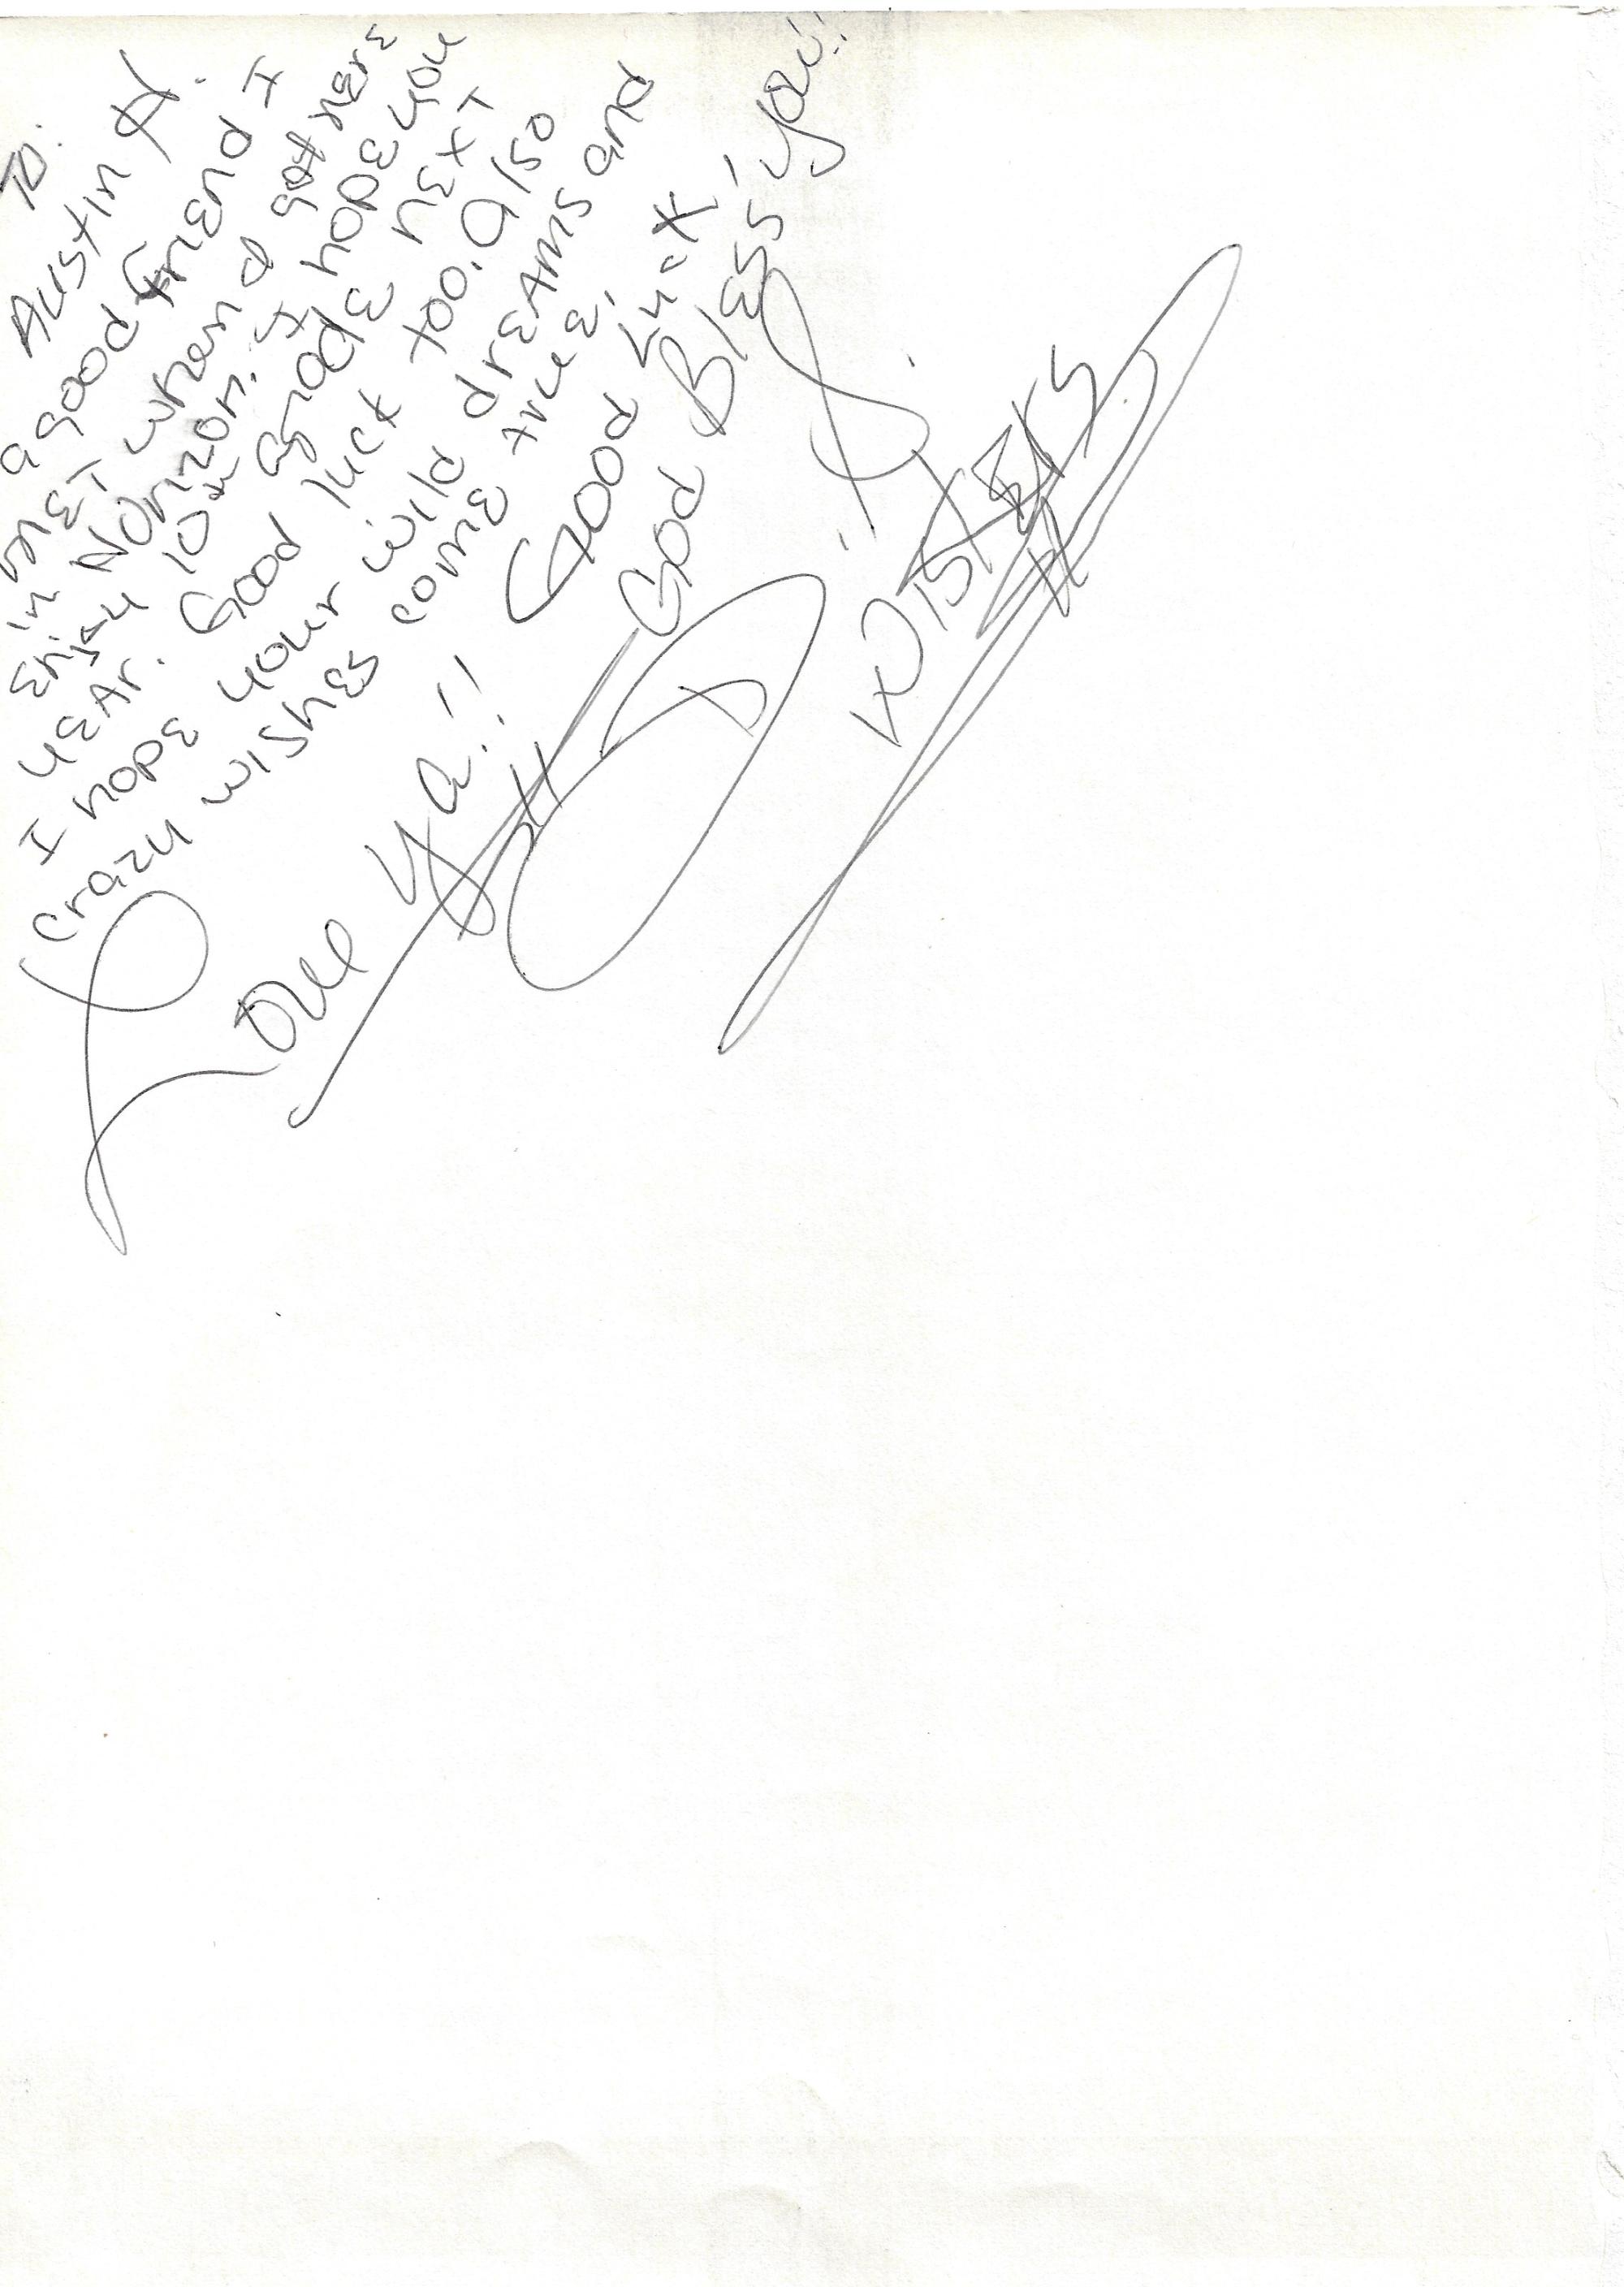 To:
Austin A.
a good friend I
met when I got here
in Norizon. I hope you
enjoy 10th grade next
year. Good luck too. Also
I hope your wild dreams and
crazy wishes come true.
Good Luck!
God Bless you!!
Love Ya!!